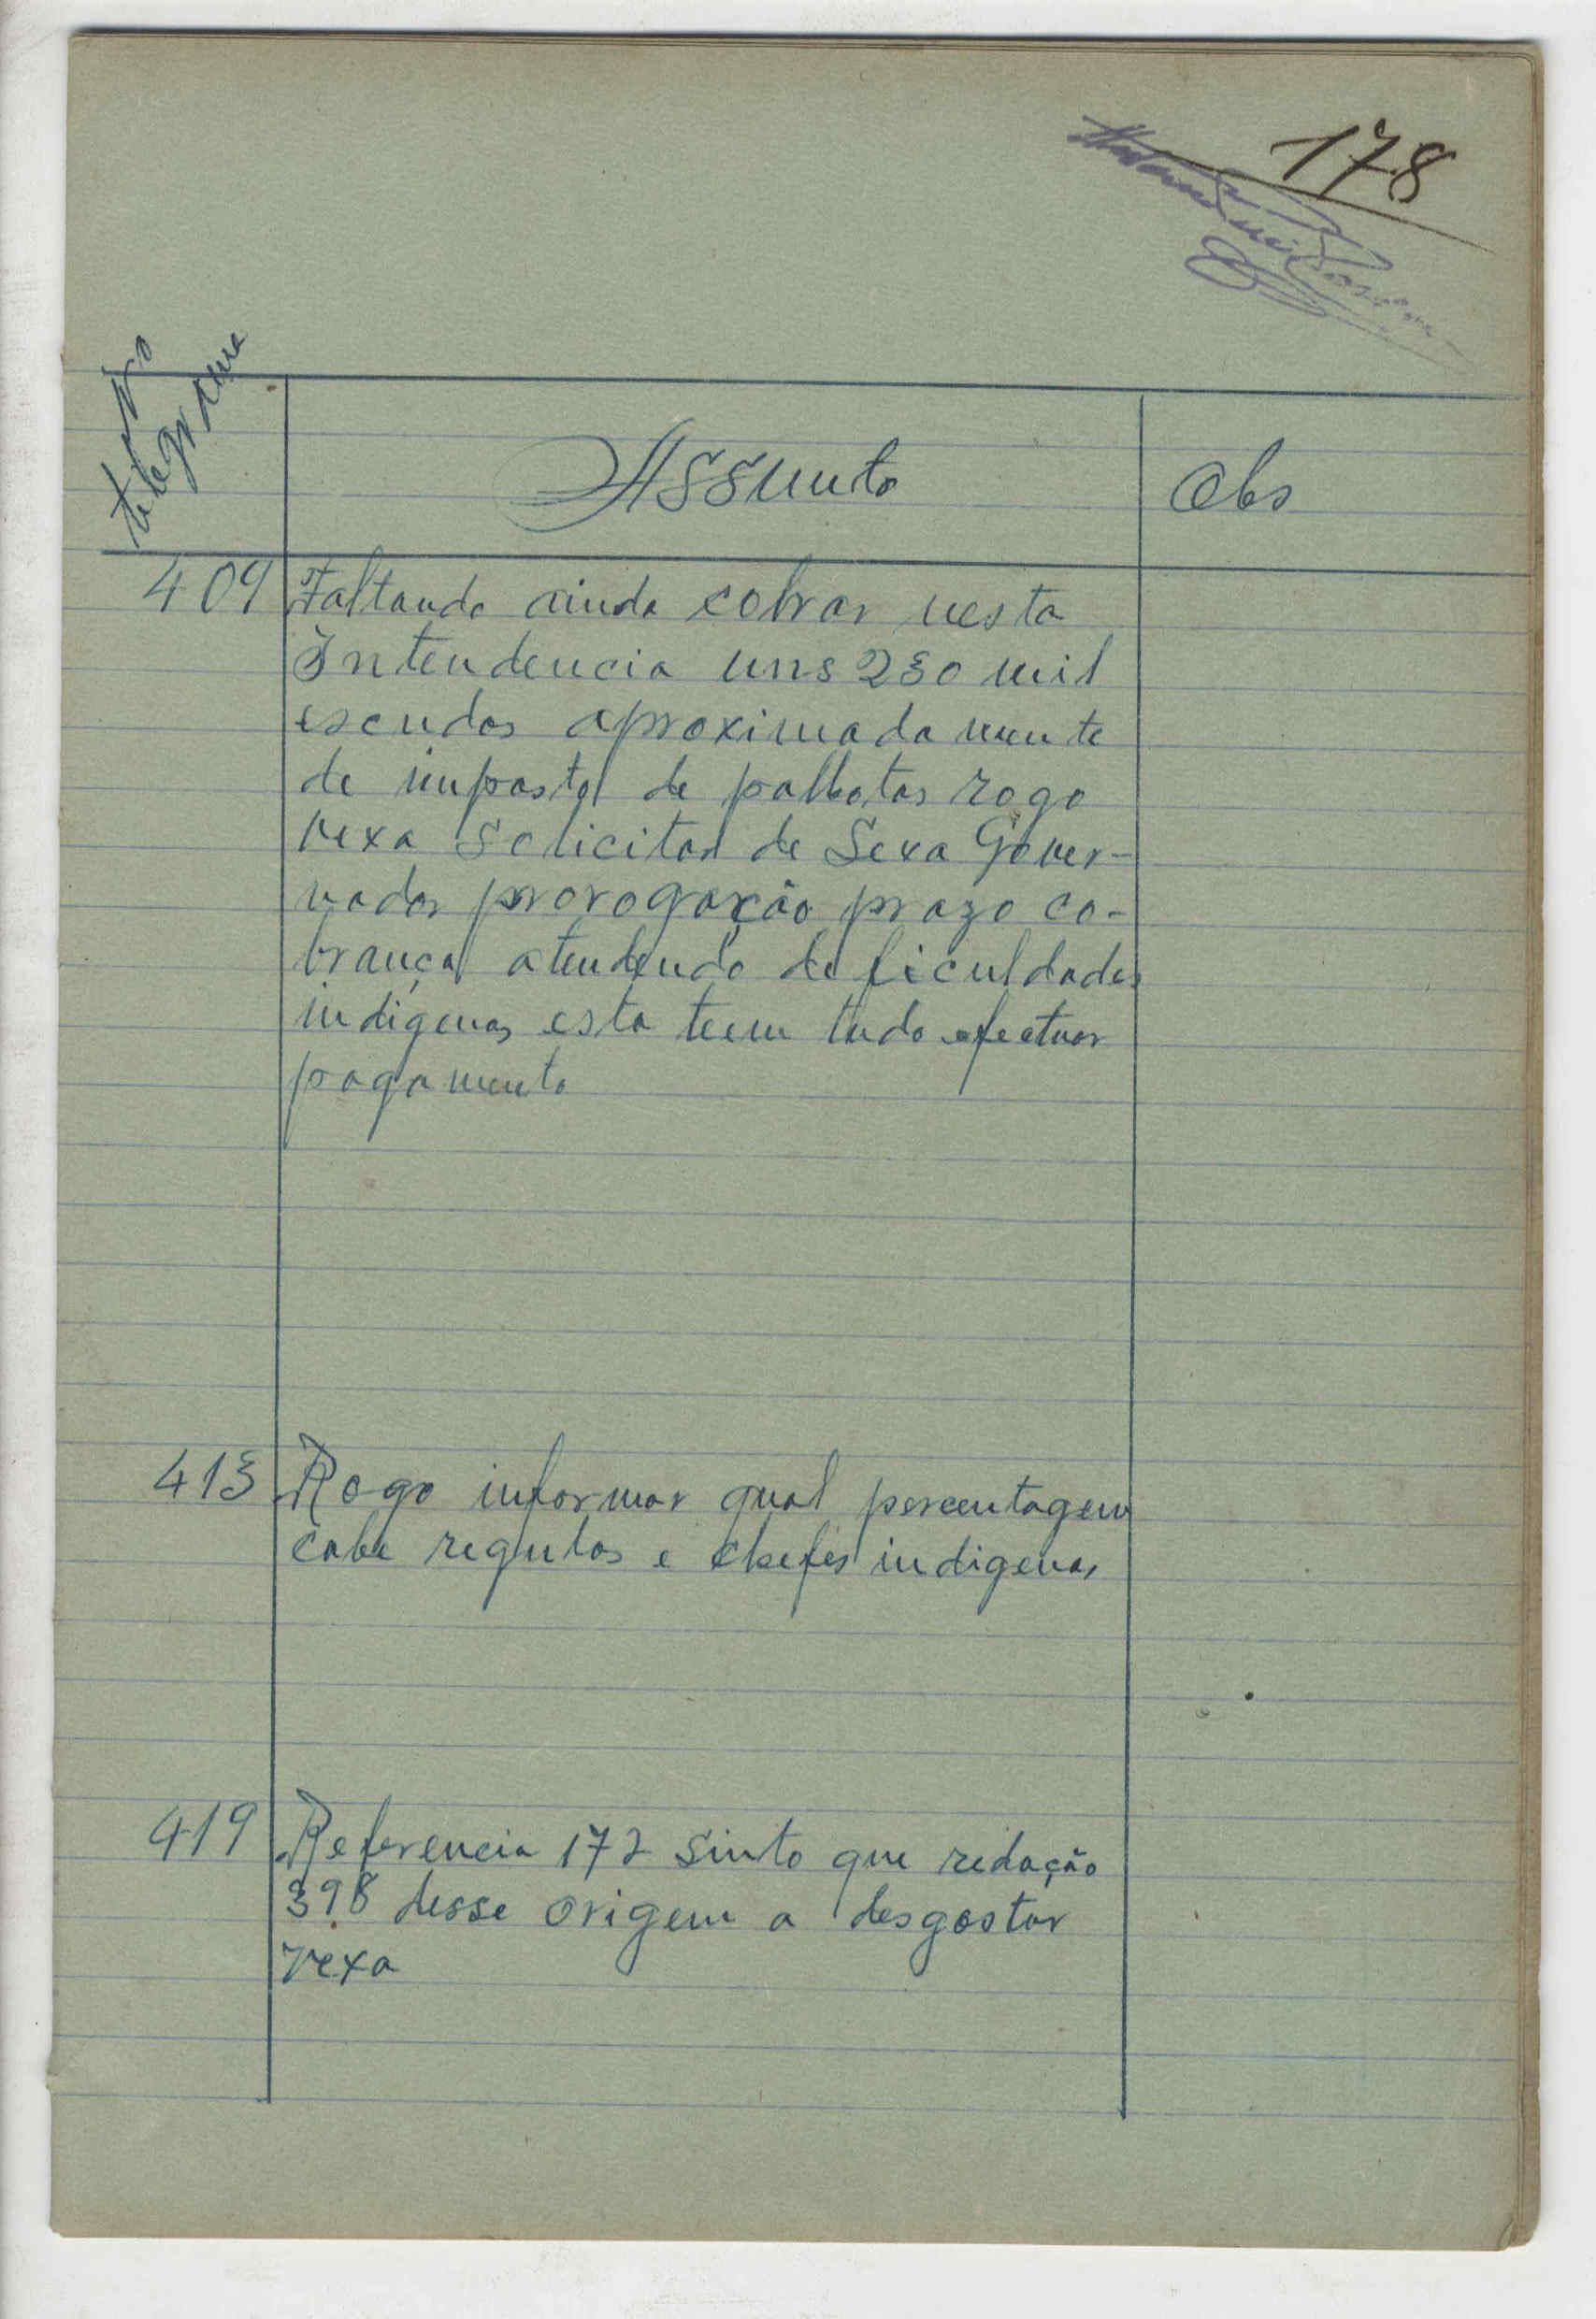 178
Nº telegrama
Assunto
Obs
409
Faltando ainda cobrar nesta
Intendencia uns 230 mil
escudos aproximadamente
de imposto de palhotas rogo
Vexa solicitar de Sexa Gover-
nador prorogação prazo co-
brança atendendo deficuldades
indígenas esta teem tudo efectuar
pagamento
413
Rogo informar qual percentagem
cabe regulos e chefes indigenas
419
Referencia 172 sinto que redação
398 desse origem a desgostar
Vexa